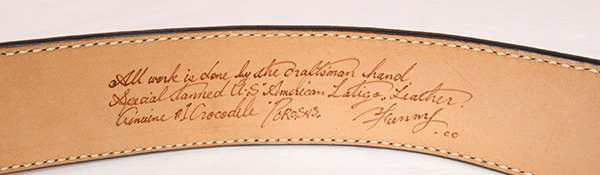 All work is done by the craftsman hand
Special tanned U.S "American Latigo" Leather.
Genuine #1 Crocodile "POROSUS." Funny
.co